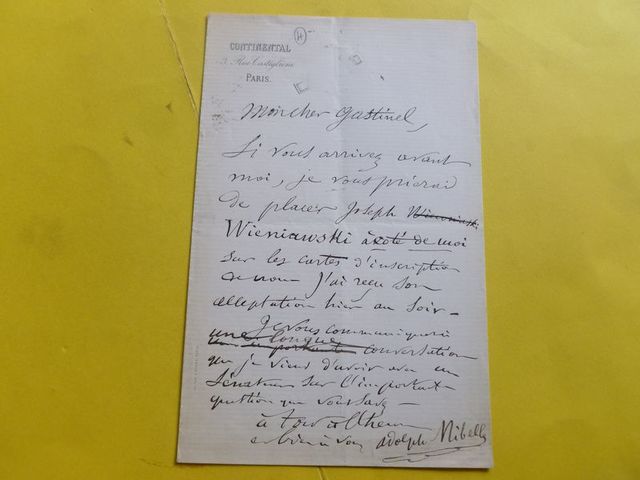 CONTINENTAL
3, Rue Castiglione
PARIS.
Mon cher Gastinel,
Si vous arrivez avant
moi, je vous prierai
de placer Joseph Wieniawski
Wieniawski à côté de moi
sur les cartes d'inscription
J'ai reçu son
acceptation hier au soir -
Je vous communiquerai
une longue
conversation
que je viens d'avoir avec un
Sénateur sur l'important
question que vous savez -
à tout à l'heure
et bien à vous adolph Nibelle